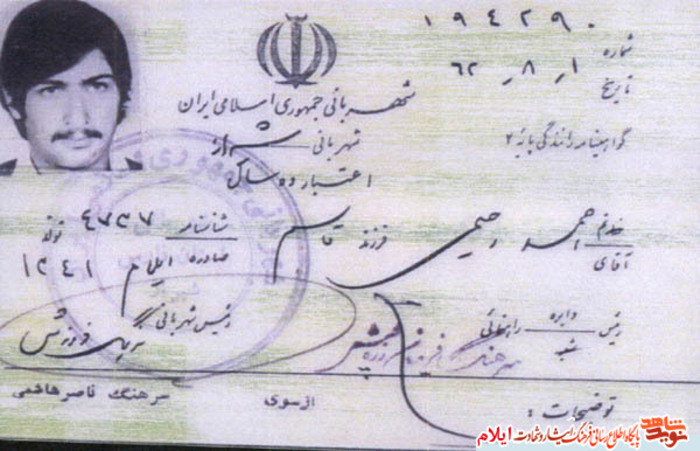 شماره ۱۹۴۲۹۰
تاریخ ۶۲٫۸٫۱
شهربانی جمهوری اسلامی ایران
شهربانی شیراز
گواهینامه رانندگی پایه ۲
اعتبار ده ساله
خانم آقای احمد رحیمی فرزند قاسم شناسنامه ۴۷۳۷ تولد ۱۳۴۱ صادره ایلام
رئیس دایره شعبه راهنمائی
رئیس شهربانی
سرهنگ
توضیحات :
از سوی سرهنگ ناصر هاشمی
نوید شاهد
پایگاه اطلاع رسانی فرهنگ ایثار و شهادت ایلام